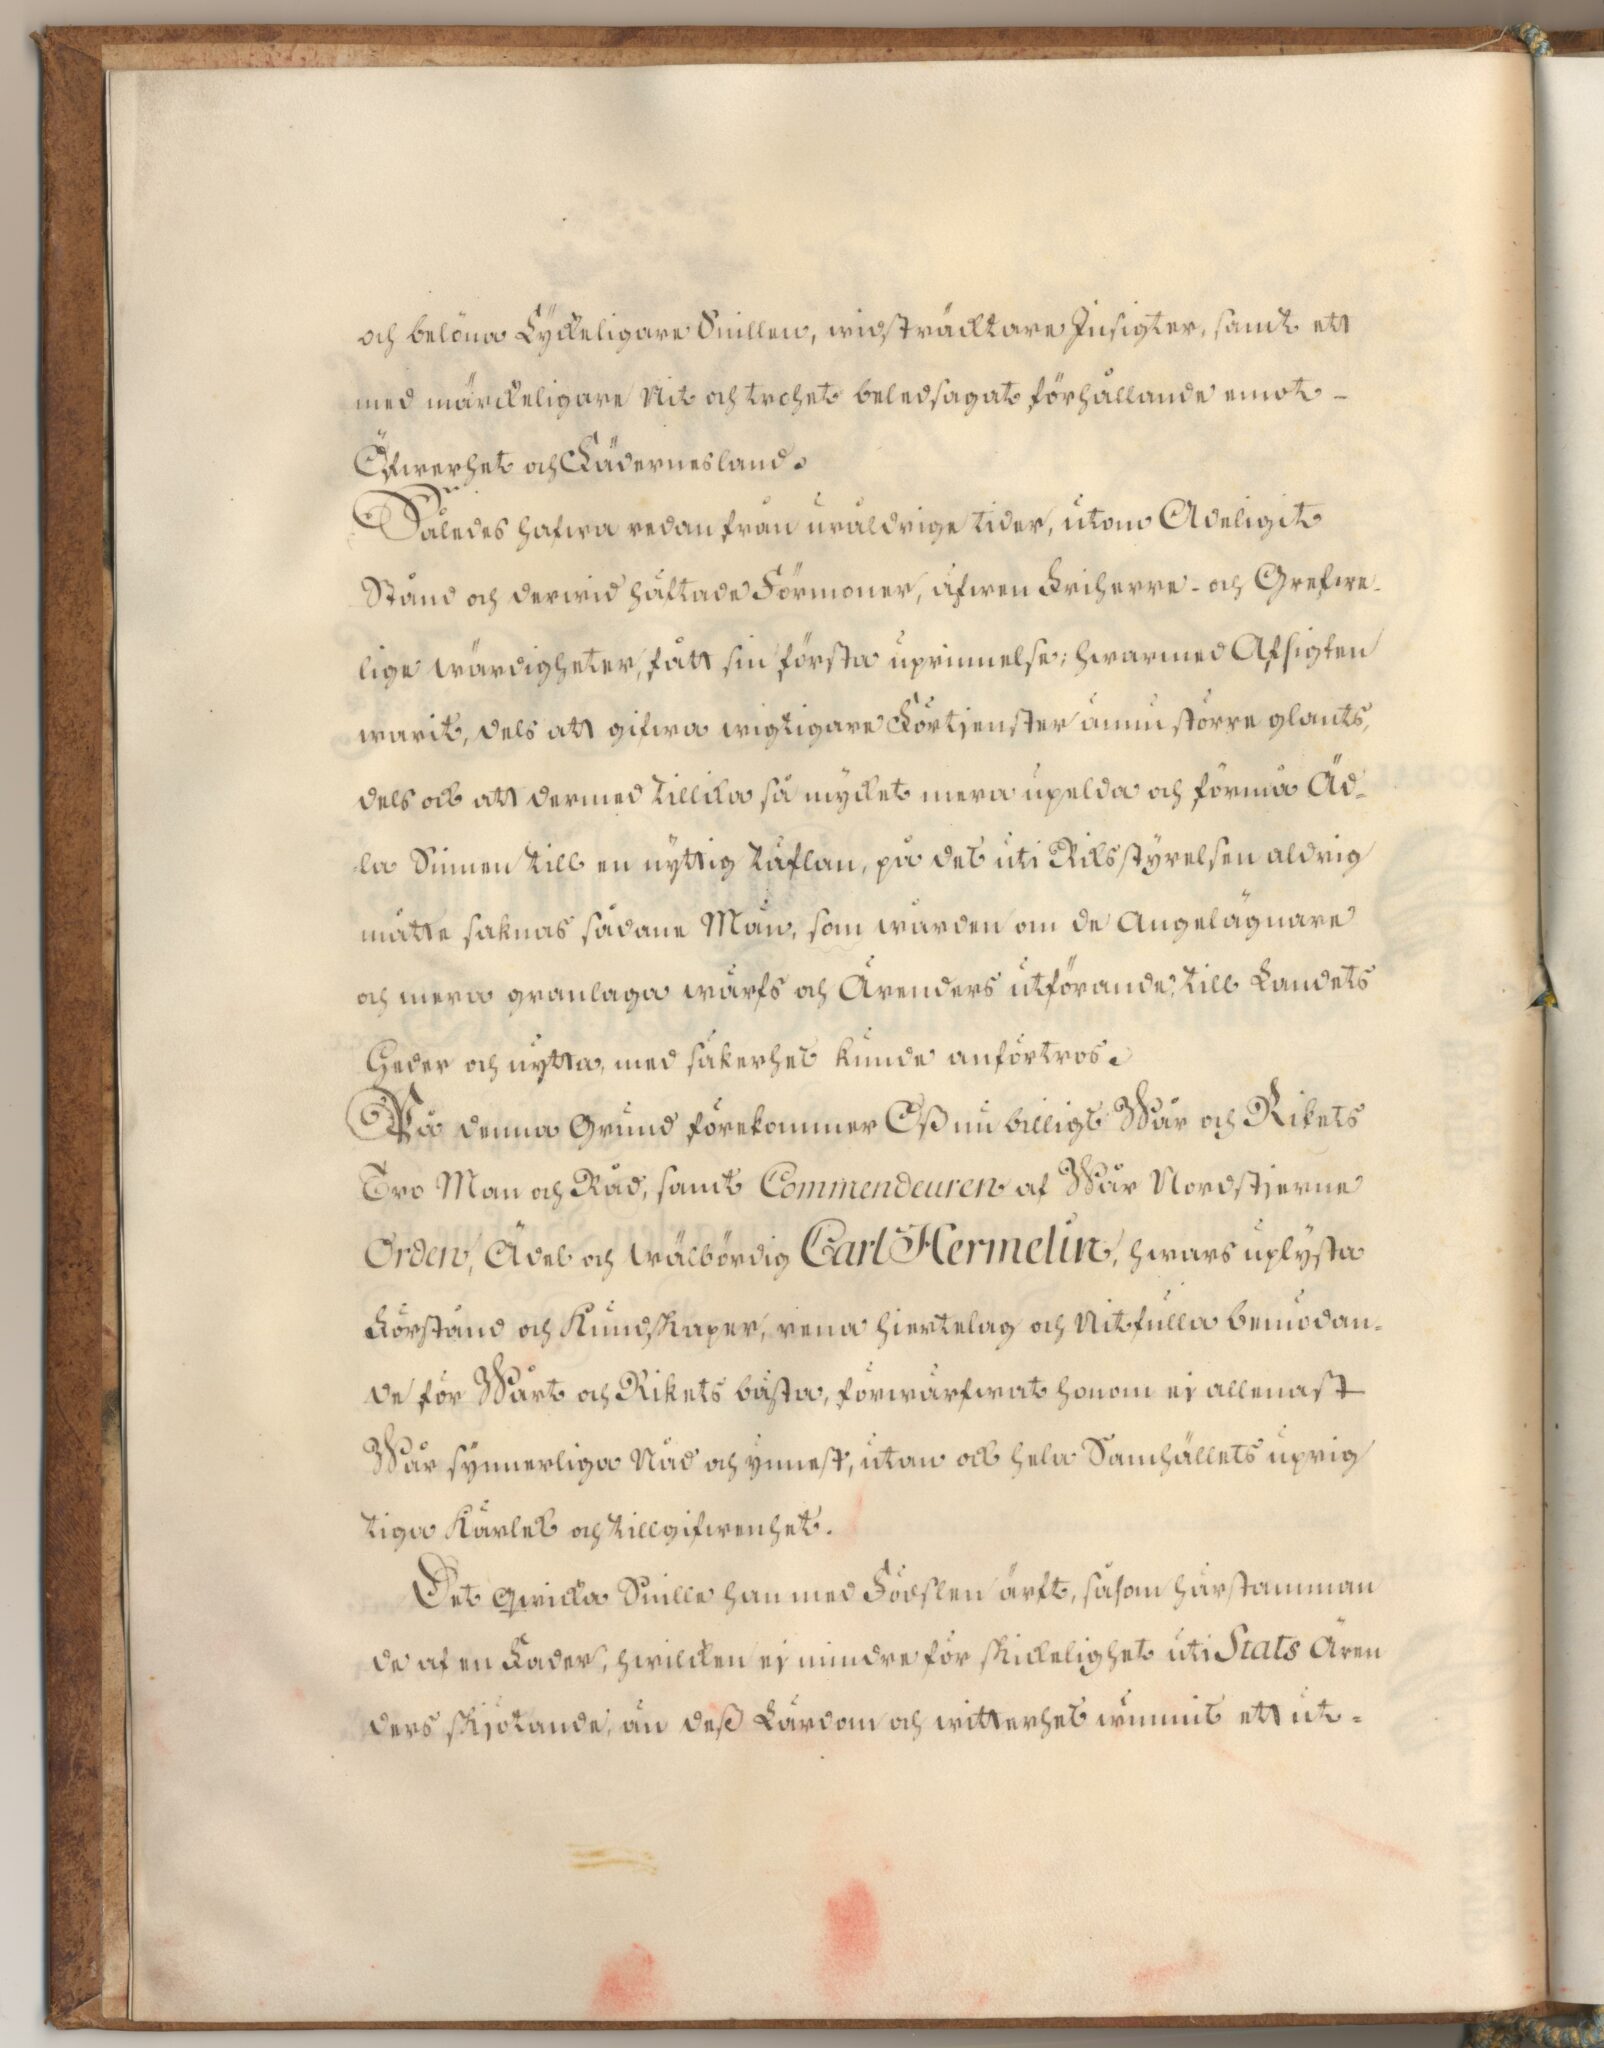 och belöna Lyckeligare Snillen, widsträcktare Insigter, samt ett
med märckeligare Nit och trohet beledsagat förhållande emot -
Öfwerhet och Fädernesland.
Således hafwa redan från uråldrige tider, utom Adeligit
Stånd och derwid häftade Förmoner, äfwen Friherre- och Grefwe-
lige wärdigheter, fått sin första uprinnelse; hwarmed Afsigten
warit, dels att gifwa wigtigare Förtjenster ännu större glants,
dels ock att dermed tillika så mycket mera upelda och förmå Äd-
-la Sinnen till en nyttig täflan, på det uti Riksstyrelsen aldrig
måtte saknas sådane Män, som wården om de Angelägnare
och mera granlaga wärfs och Ärenders utförande, till Landets
Heder och nytta, med säkerhet kunde anförtros.
På denna Grund förekommer Oß nu billigt Wår och Rikets
Tro Man och Råd, samt Commendeuren af Wår Nordstjerne
Orden, Ädel och wälbördig Carl Hermelin, hwars uplysta
Förstånd och Kundskaper, rena hiertelag och Nitfulla bemödan-
de för Wårt och Rikets bästa, förwärfwat honom ej allenast
Wår synnerliga Nåd och ynnest, utan ock hela Samhällets uprig
tiga Kärlek och tillgifwenhet.
Det qwicka Snille han med Födslen ärft, såsom härstamman
de af en Fader, hwilcken ej mindre för skickelighet uti Stats Ären
ders skjötande, än deß Lärdom och witterhet wunnit ett ut-